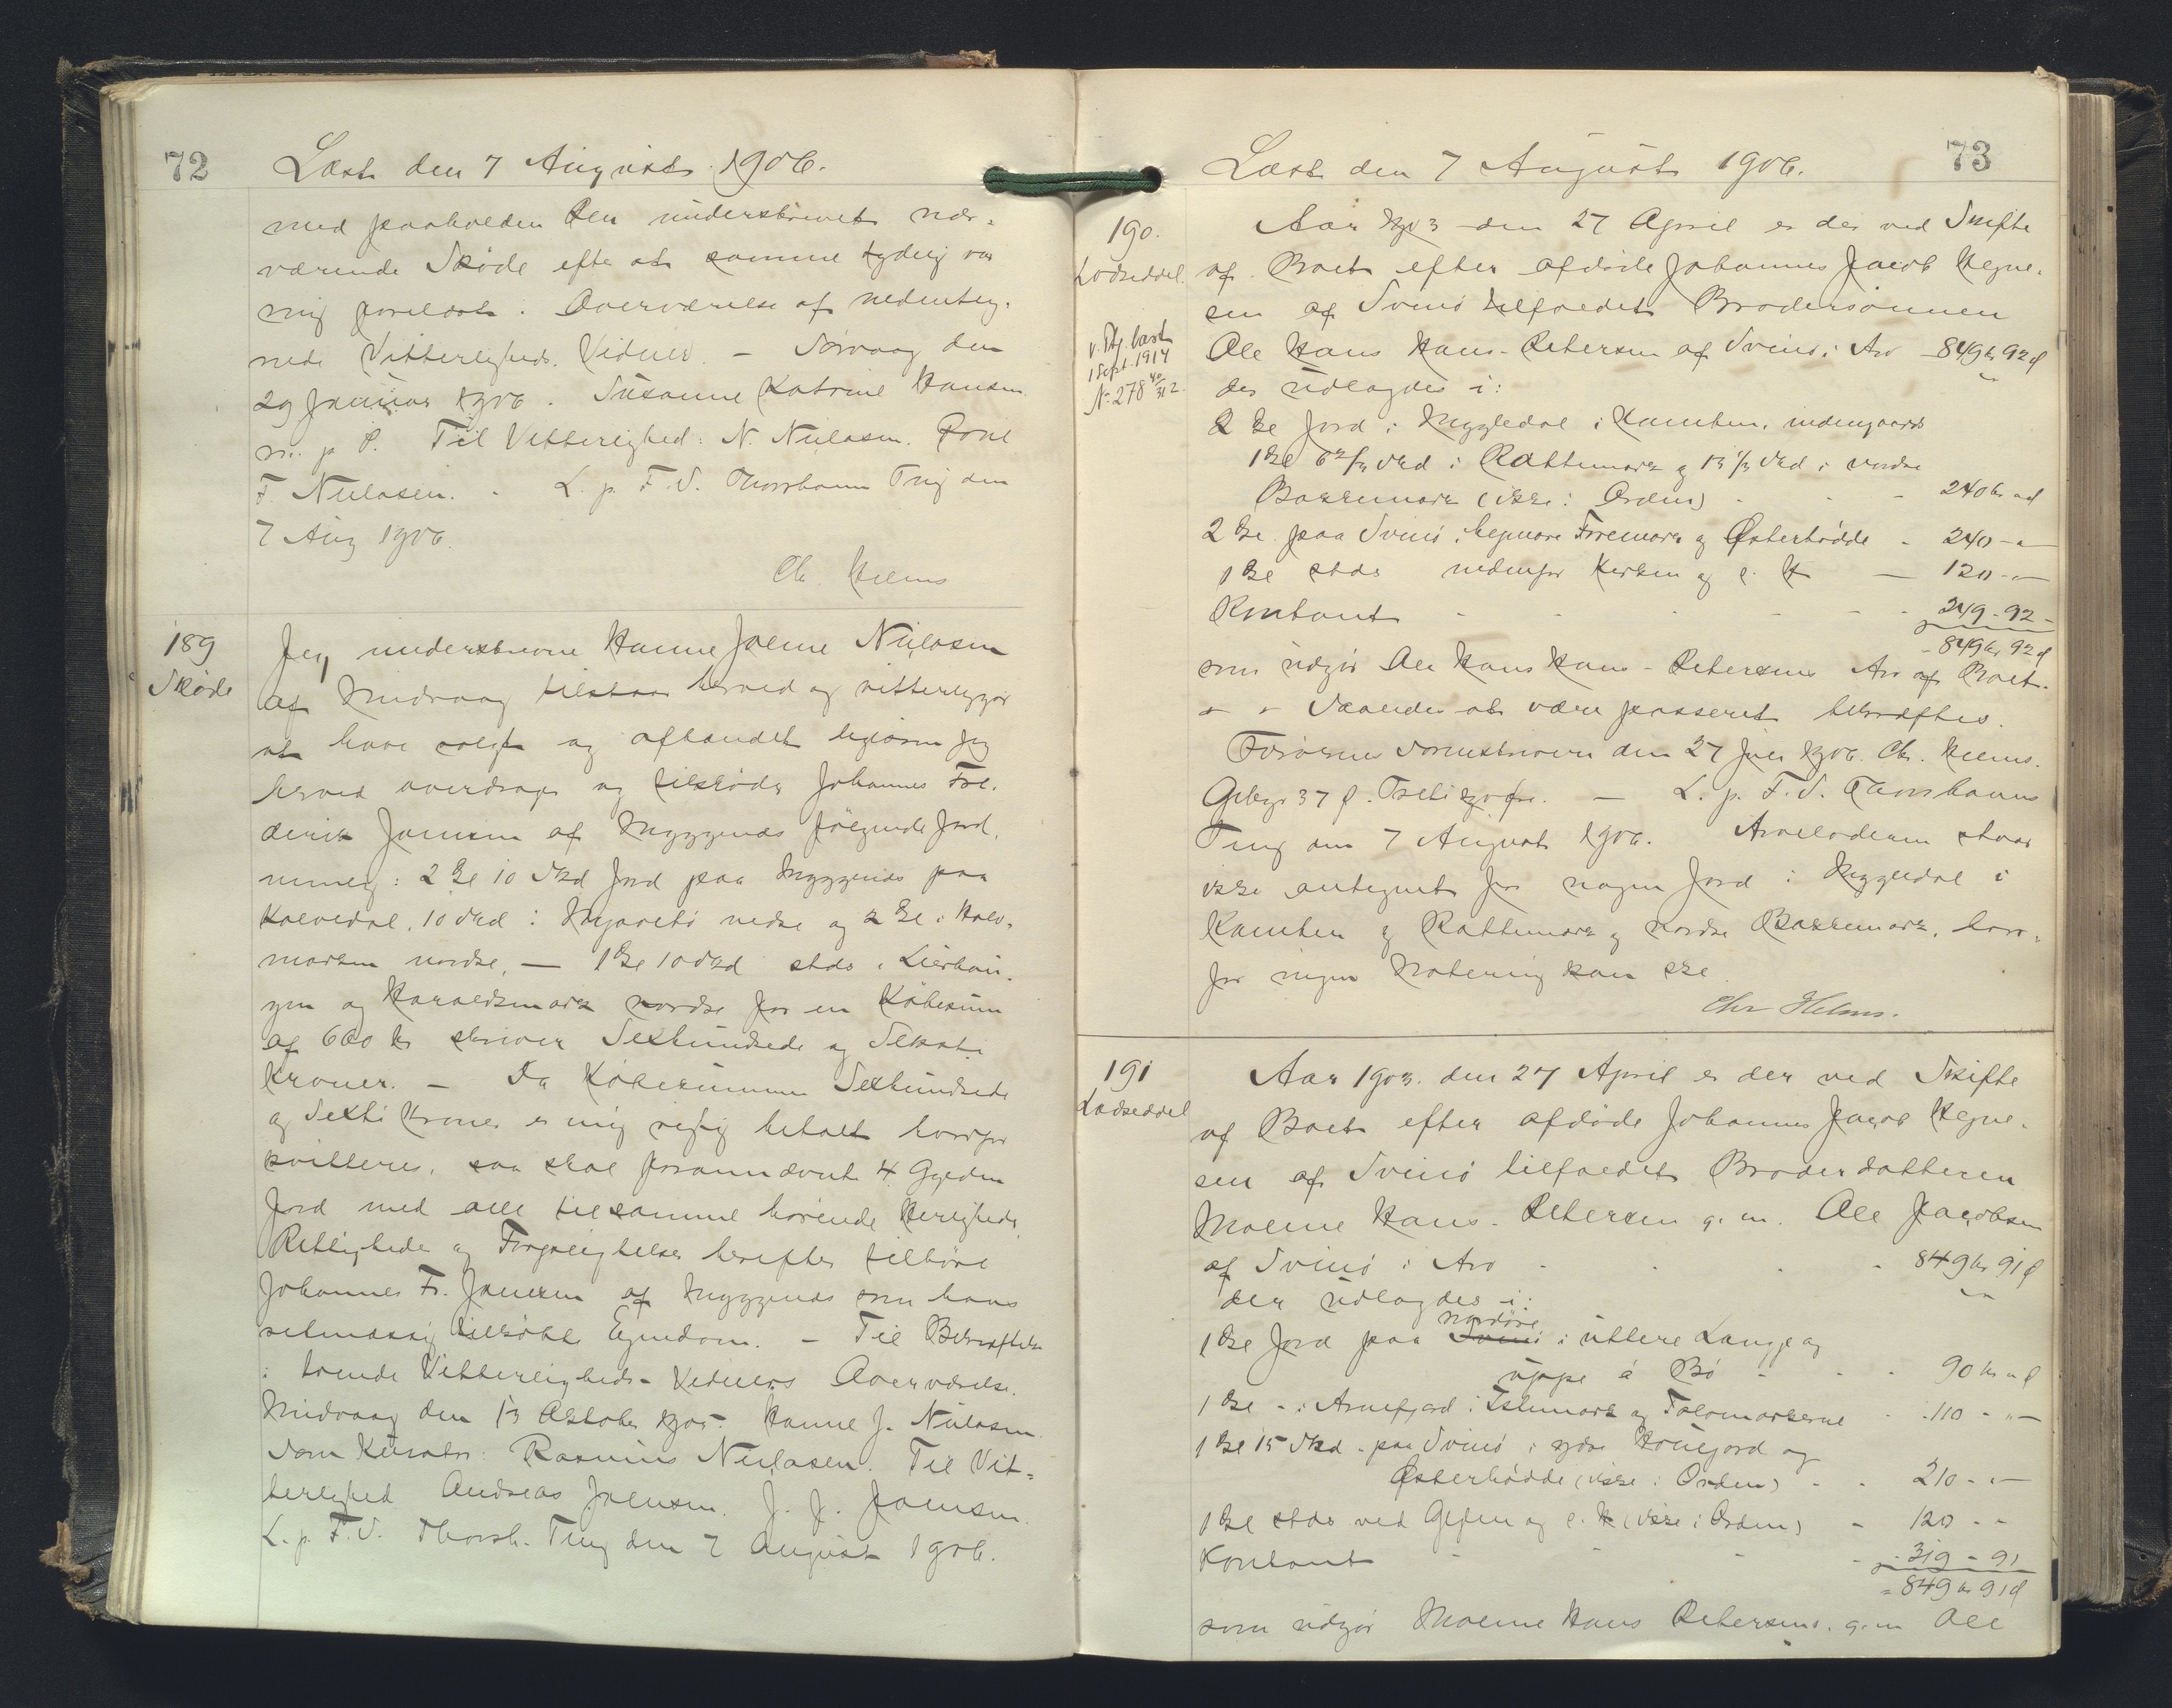 72
Læst den 7 August 1906.
med paaholden Pen underskrevet nær-
værende Skøde efter at samme tydelig var
mig forelæst i Overværelse af nedenteg-
nede Vitterligheds Vidner. - Sørvaag den
29 Januar 1906. Susanne Katrine Hansen
m. p. P. Til Vitterlighed: N. Nielasen. Poul
F. Nielasen. - L. p. F. V. Thorshavn Ting den
7 Aug 1906.
Ch. Helms
189
Skøde
Jeg underskrevne Hanne Joline Nielasen
af Midvaag tilstaar herved og vitterliggør
at have solgt og afhændet ligesom jeg
herved overdrager og tilskøder Johannes Fre-
derik Joensen af Myggenæs følgende Jord,
nemlig: 2 Gl 10 Skd Jord paa Myggenæs paa
Kalvedal, 10 Skd i nedre og 2 Gl i Halv-
marken nordre, - 1 Gl 10 Skd stds i
og Haraldsmark nordre for en Købesum
af 660 kr skriver Sexhundrede og Seksti
Kroner. - Da Købesummen Sexhundrede
og Sexti Kroner er mig rigtig betalt hvorfor
kvitteres, saa skal forannævnte 4 Gylden
Jord med alle tilsamme hørende Herligheder,
Rettigheder og Forpligtelser herefter tilhøre
Johannes Fr. Joensen af Myggenæs som hans
retmæssig tilkøbte Ejendom. - Til Bekræftelse
i tvende Vitterligheds-Vidners Overværelse.
Midvaag den 13 Oktober 1905. Hanne J. Nielasen.
Som Kurator: Rasmus Nielasen. Til Vit-
terlighed Andreas Joensen. J. J. Joensen.
L. p. F. V. Thorsh. Ting den 7 August 1906.
Læst den 7 August 1906.
73
190.
Lodseddel.
v. Skj. læst
1 Sept. 1914
N. 278
Aar 1903 den 27 April er der ved Skifte
af Boet efter afdøde Johannes Jacob Hejne-
sen af Svinø tilfaldet Brodersønnen
Ole Hans Hans-Petersen af Svinø i Arv - 849 kr 92 ø
der udlagdes i:
2 Gl Jord i Myggledal i Kamben, indengaards
1 Gl Skd i Rattemark og 13 1/3 Skd i nordre
Bakkemark (ikke i Orden) - 240 kr " ø
2 Gl. paa Svinø i Foremark og Østerhødde - 240 - " -
1 Gl stds nedenfor Kirken og e. H - 120 - " -
Kontant - 249 - 92 -
- 849 kr 92 ø
som udgør Ole Hans Hans-Petersens Arv af Boet.
" " Saaledes at være passeret bekræftes.
Færøernes Sorenskriveri den 27 Juli 1906. Ch. Helms.
Gebyr 37 ø. - L. p. F. V. Thorshavns
Ting den 7 August 1906. Arveladeren staar
ikke antegnet for nogen Jord i Myggledal i
Kamben og Rattemark og nordre Bakkemark, hvor-
for ingen Notering kan ske
Chr Helms.
191
Lodseddel
Aar 1903. den 27 April er der ved Skifte
af Boet efter afdøde Johannes Jacob Hejne-
sen af Svinø tilfaldet Broderdatteren
Malene Hans-Petersen g. m. Ole Jacobsen
af Svinø i Arv - 849 kr 91 ø
der udlagdes i:
nordøre
1 Gl Jord paa Svinø i uttere Langje og
uppe á Bø - 90 kr " ø
1 Gl - i Arnefjord i og - 110 - " -
1 Gl 15 Skd - paa Svinø i ydre og
Østerhødde (ikke i Orden) - 210 - " -
1 Gl stds ved og e. H (ikke i Orden) - 120 - -
Kontant - 319 - 91
= 849 kr 91 ø
som udgør Malene Hans Petersens g. m Ole